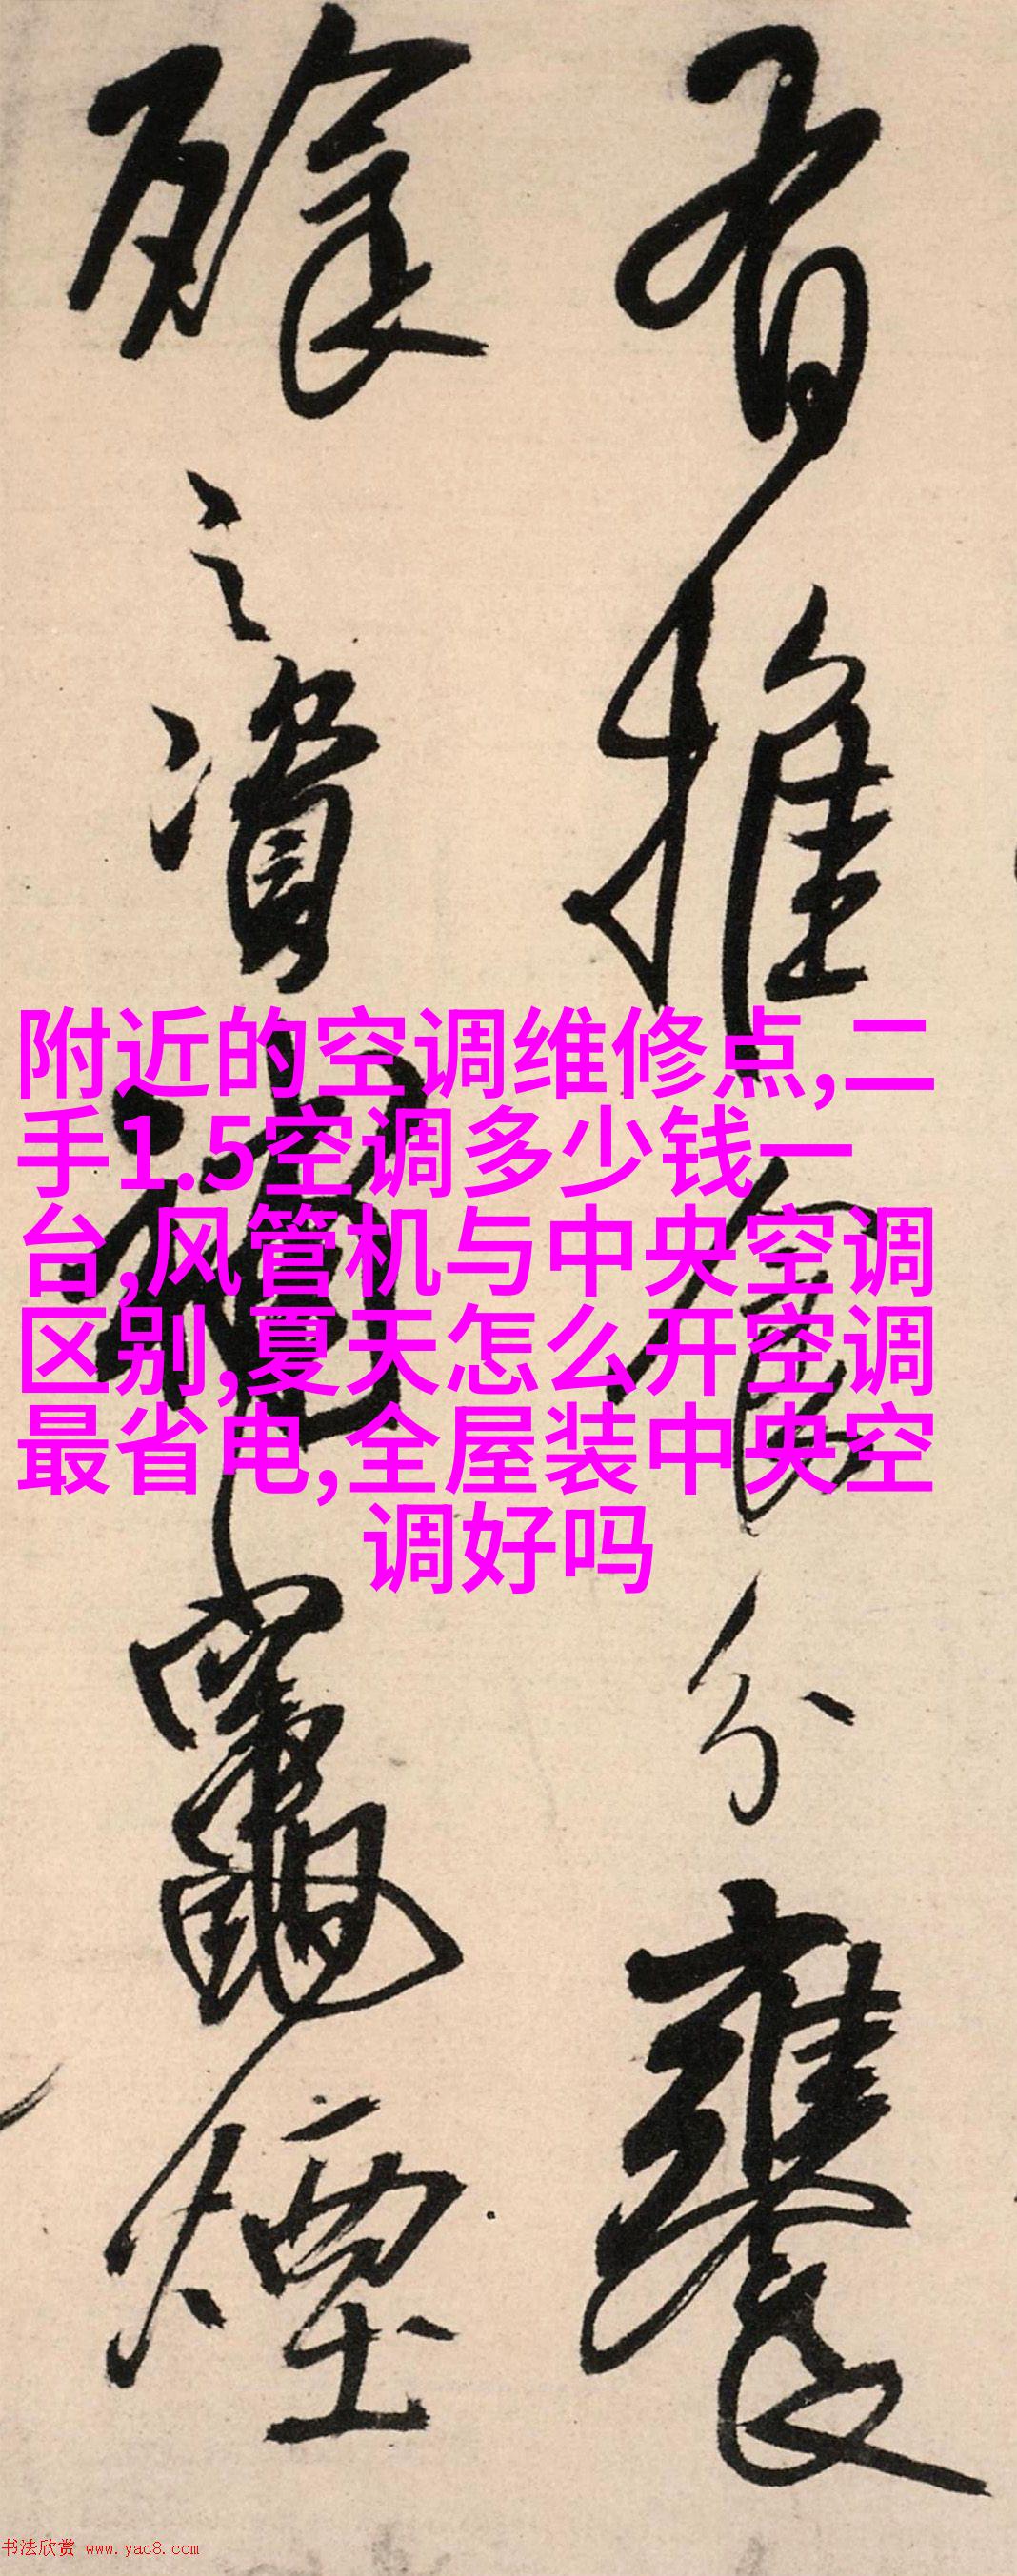 有推食分饔
餘之資相竈煙
附近的空调维修点,二
手1.5空调多少钱一
台,风管机与中央空调
区别,夏天怎么开空调
最省电,全屋装中央空
调好吗
书法欣赏 www.yac8.com